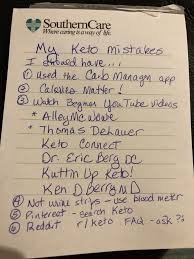 SouthernCare
Where caring is a way of life.
My Keto mistakes
I should have...
① Used the Carb Manager app
② Calories Matter!
③ Watch Beginner YouTube videos
* Alley McWowe
* Thomas DeLauer
Keto Connect
Dr. Eric Berg DC
Kuttin Up Keto!
Ken D Berry MD
④ Not urine strips - use blood meter
⑤ Pinterest - search Keto
⑥ Reddit r/keto FAQ - ask ??